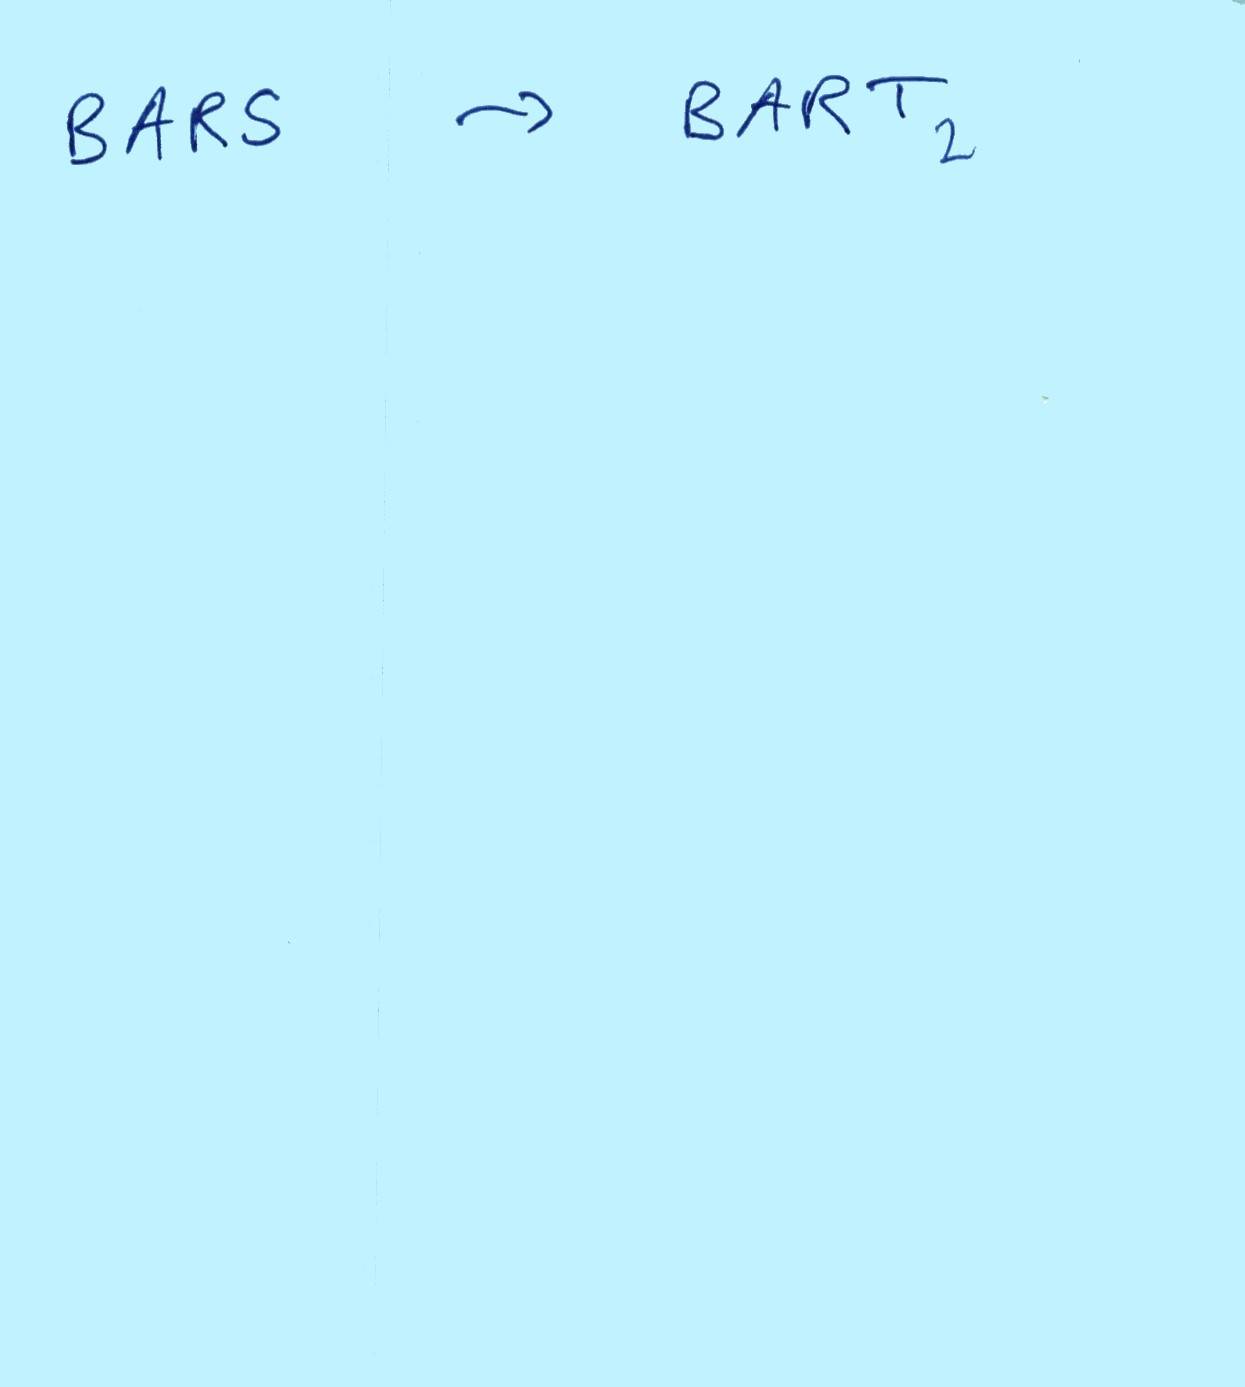 BARS → BART₂